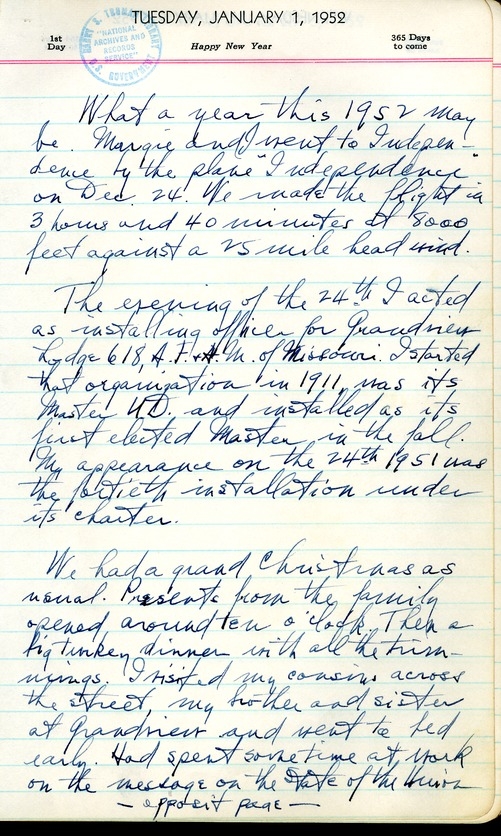 TUESDAY, JANUARY 1, 1952
1st Day
Happy New Year
365 Days to come
HARRY S. TRUMAN LIBRARY
"NATIONAL ARCHIVES AND RECORDS SERVICE"
U.S.
What a year this 1952 may
be. Margie and I went to Indepen-
dence by the plane "Independence"
on Dec. 24. We made the flight in
3 hours and 40 minutes at 8000
feet against a 25 mile head wind.
The evening of the 24th I acted
as installing officer for Grandview
Lodge 618, A.F.&A.M. of Missouri. I started
that organization in 1911, was its
Master U.D. and installed as its
first elected Master in the fall.
My appearance on the 24th 1951 was
the fortieth installation under
its charter.
We had a grand Christmas as
usual. Presents from the family
opened around ten o'clock. Then a
big turkey dinner with all the trim-
mings. I visited my cousins across
the street, my brother and sister
at Grandview and went to bed
early. Had spent sometime at work
on the message on the State of the Union
— opposit page —